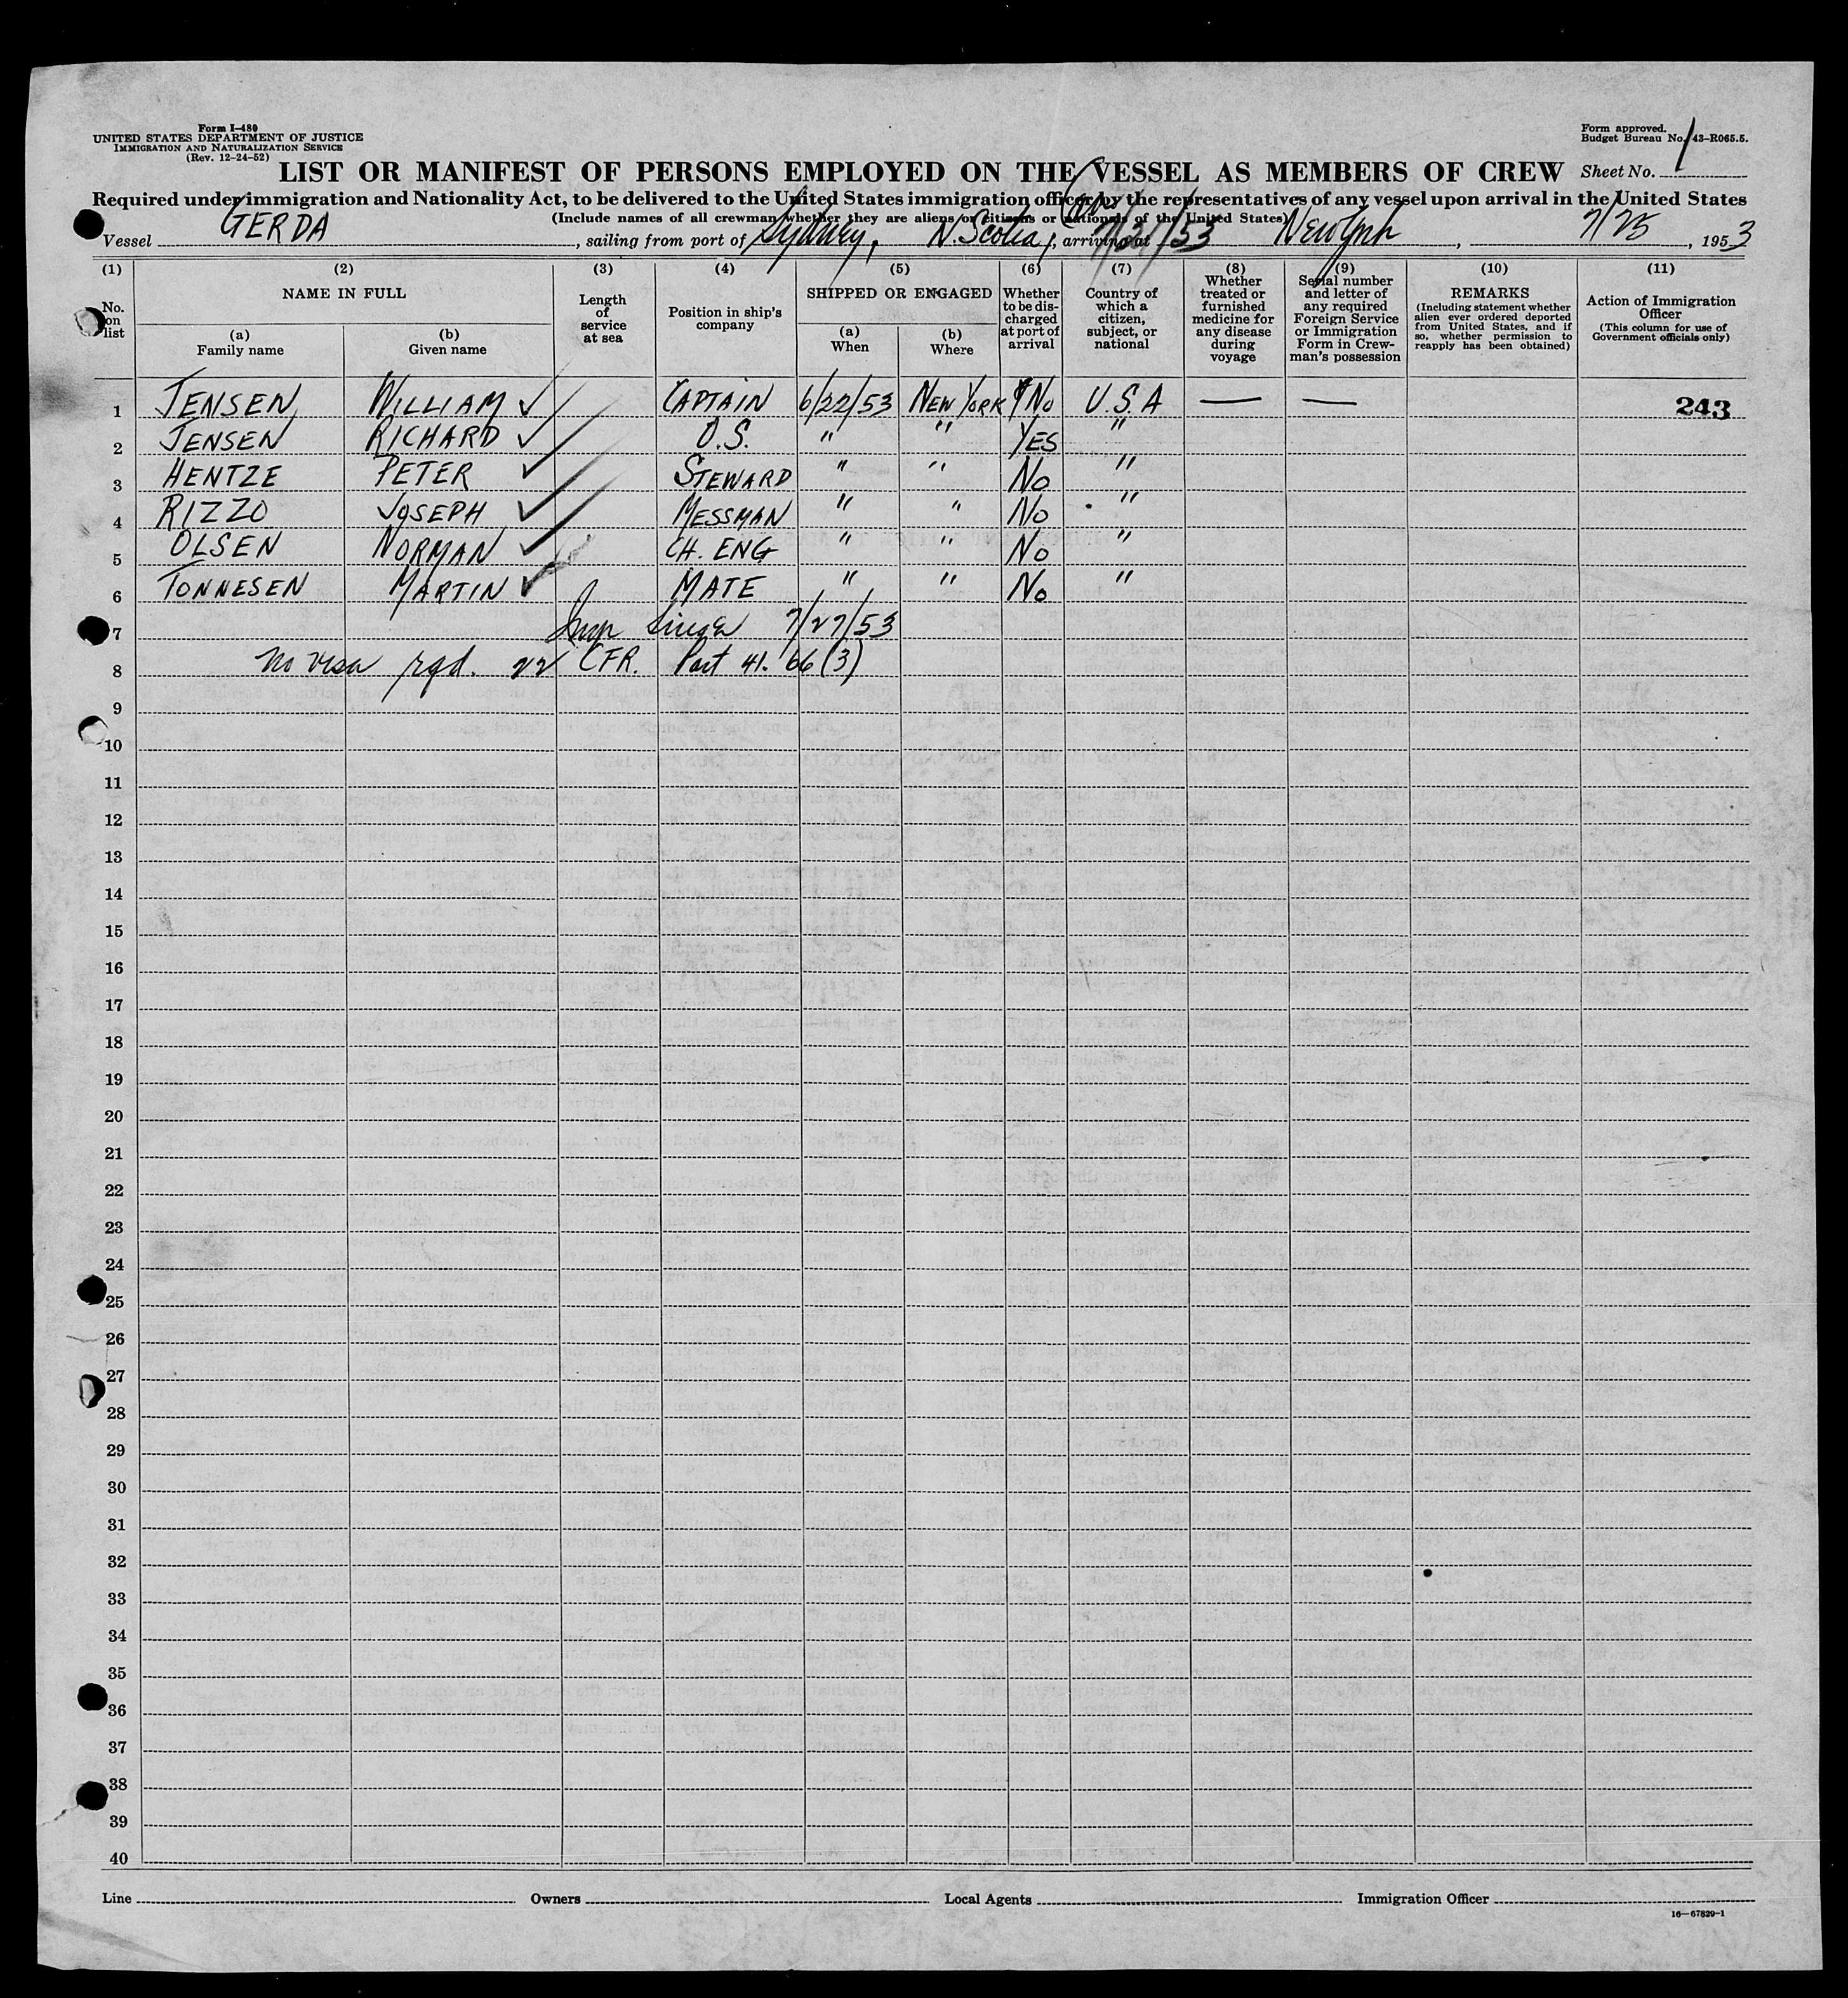 Form I-480
UNITED STATES DEPARTMENT OF JUSTICE
IMMIGRATION AND NATURALIZATION SERVICE
(Rev. 12-24-52)
Form approved.
Budget Bureau No. 43-R065.5.
LIST OR MANIFEST OF PERSONS EMPLOYED ON THE VESSEL AS MEMBERS OF CREW
Sheet No. 1
Required under immigration and Nationality Act, to be delivered to the United States immigration officer by the representatives of any vessel upon arrival in the United States
(Include names of all crewman whether they are aliens or citizens or nationals of the United States)
Vessel GERDA, sailing from port of Sydney, N. Scotia, 7/21/53 arriving at New York, 7/25, 1953
(1) (2) (3) (4) (5) (6) (7) (8) (9) (10) (11)
No. on list
NAME IN FULL
(a) Family name
(b) Given name
Length of service at sea
Position in ship's company
SHIPPED OR ENGAGED
(a) When
(b) Where
Whether to be discharged at port of arrival
Country of which a citizen, subject, or national
Whether treated or furnished medicine for any disease during voyage
Serial number and letter of any required Foreign Service or Immigration Form in Crewman's possession
REMARKS
(Including statement whether alien ever ordered deported from United States, and if so, whether permission to reapply has been obtained)
Action of Immigration Officer
(This column for use of Government officials only)
1 JENSEN WILLIAM ✓ CAPTAIN 6/22/53 NEW YORK No U.S.A — — 243
2 JENSEN RICHARD ✓ O.S. " " YES "
3 HENTZE PETER ✓ STEWARD " " No "
4 RIZZO JOSEPH ✓ MESSMAN " " No "
5 OLSEN NORMAN ✓ CH. ENG " " No "
6 TONNESEN MARTIN ✓ MATE " " No "
7 7/27/53
8 No visa rqd. 22 CFR. Part 41. 66 (3)
9
10
11
12
13
14
15
16
17
18
19
20
21
22
23
24
25
26
27
28
29
30
31
32
33
34
35
36
37
38
39
40
Line Owners Local Agents Immigration Officer
16—67829-1